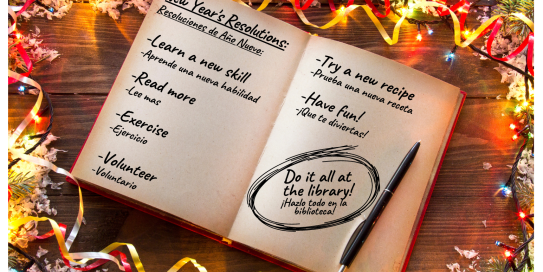 New Year's Resolutions:
Resoluciones de Año Nuevo:
-Learn a new skill
-Aprende una nueva habilidad
-Read more
-Lee mas
-Exercise
-Ejercicio
-Volunteer
-Voluntario
-Try a new recipe
-Prueba una nueva receta
-Have fun!
-¡Que te diviertas!
Do it all at
the library!
¡Hazlo todo en la
biblioteca!